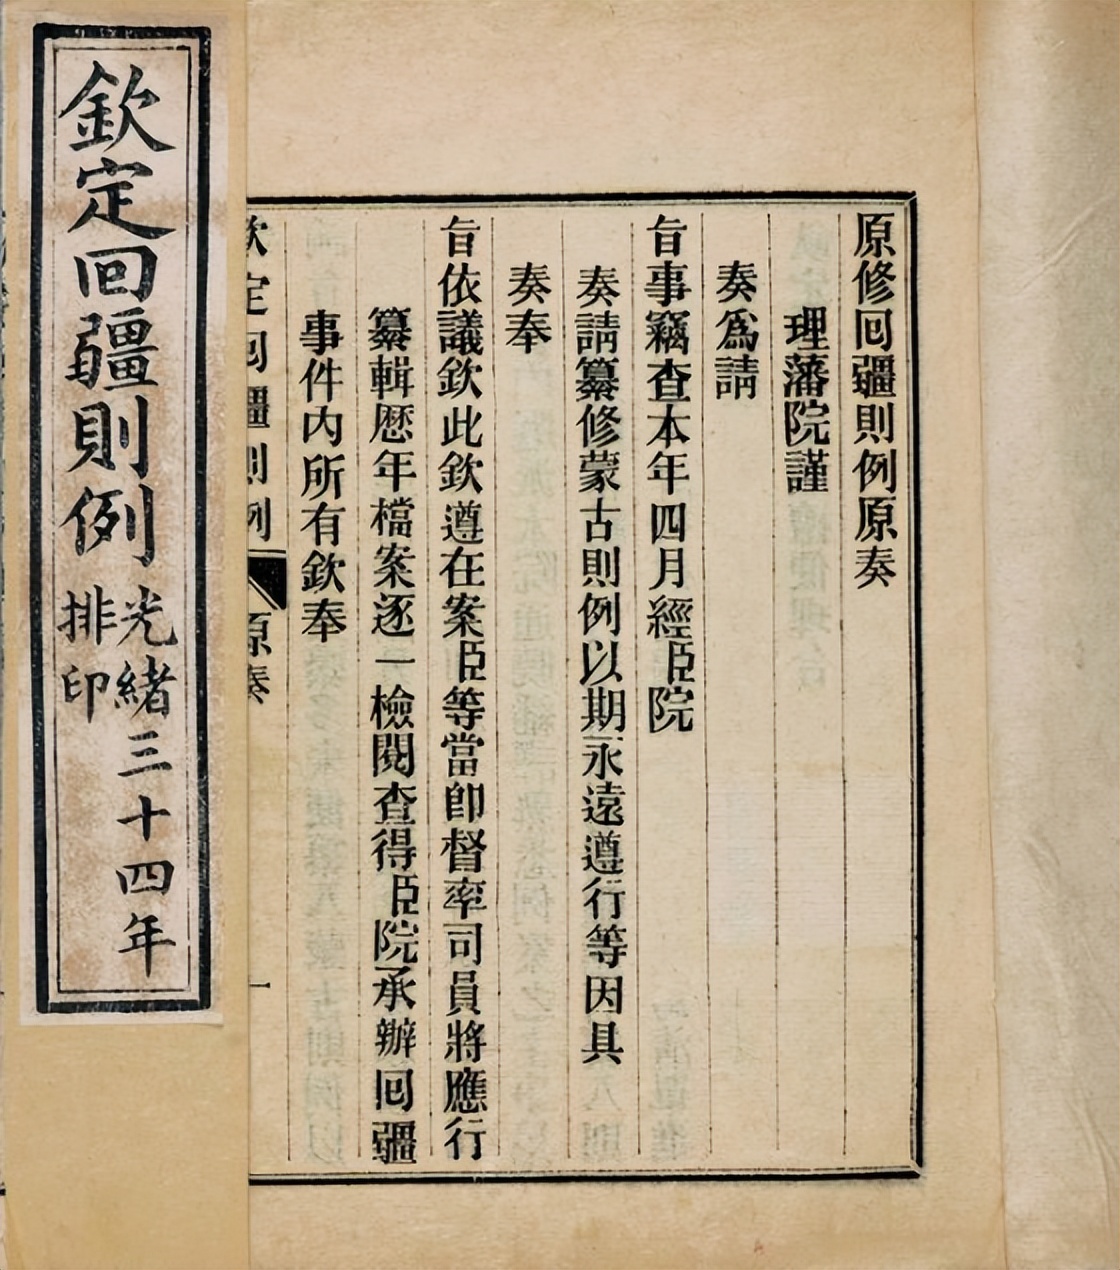 原修回疆則例原奏
理藩院謹
奏爲請
旨事竊查本年四月經臣院
奏請纂修蒙古則例以期永遠遵行等因具
奏奉
旨依議欽此欽遵在案臣等當卽督率司員將應行
纂輯歷年檔案逐一檢閱查得臣院承辦回疆
事件內所有欽奉
欽定回疆則例 原奏 一
欽定回疆則例
光緒三十四年
排印